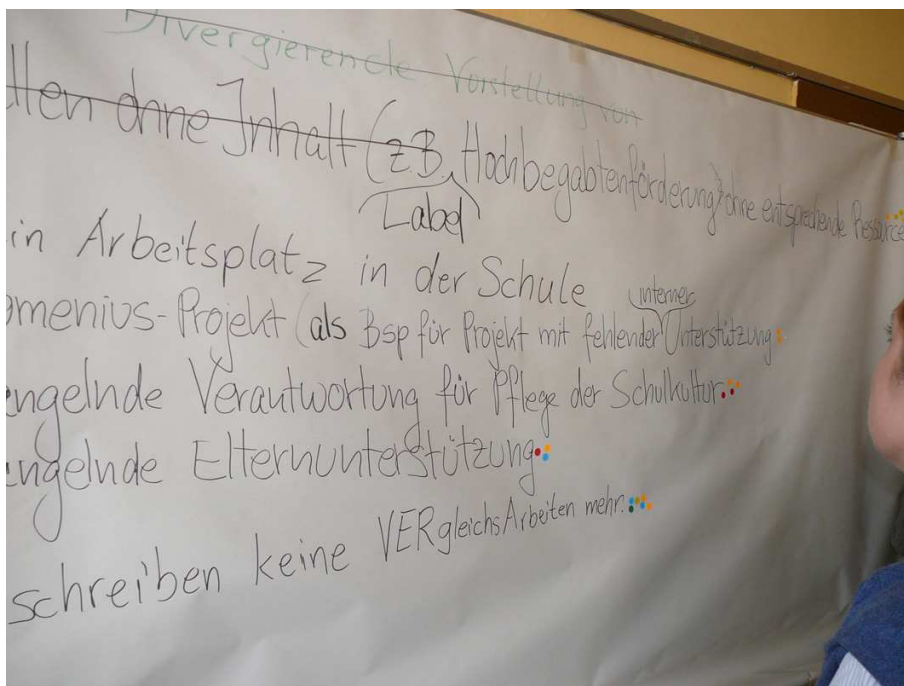 Divergierende Vorstellung von
llen ohne Inhalt (z.B. Hochbegabtenförderung) ohne entsprechende Ressource
Label
in Arbeitsplatz in der Schule
interner
omenius-Projekt (als Bsp für Projekt mit fehlender Unterstützung
engelnde Verantwortung für Pflege der Schulkultur
engelnde Elternunterstützung
schreiben keine VERgleichsArbeiten mehr.